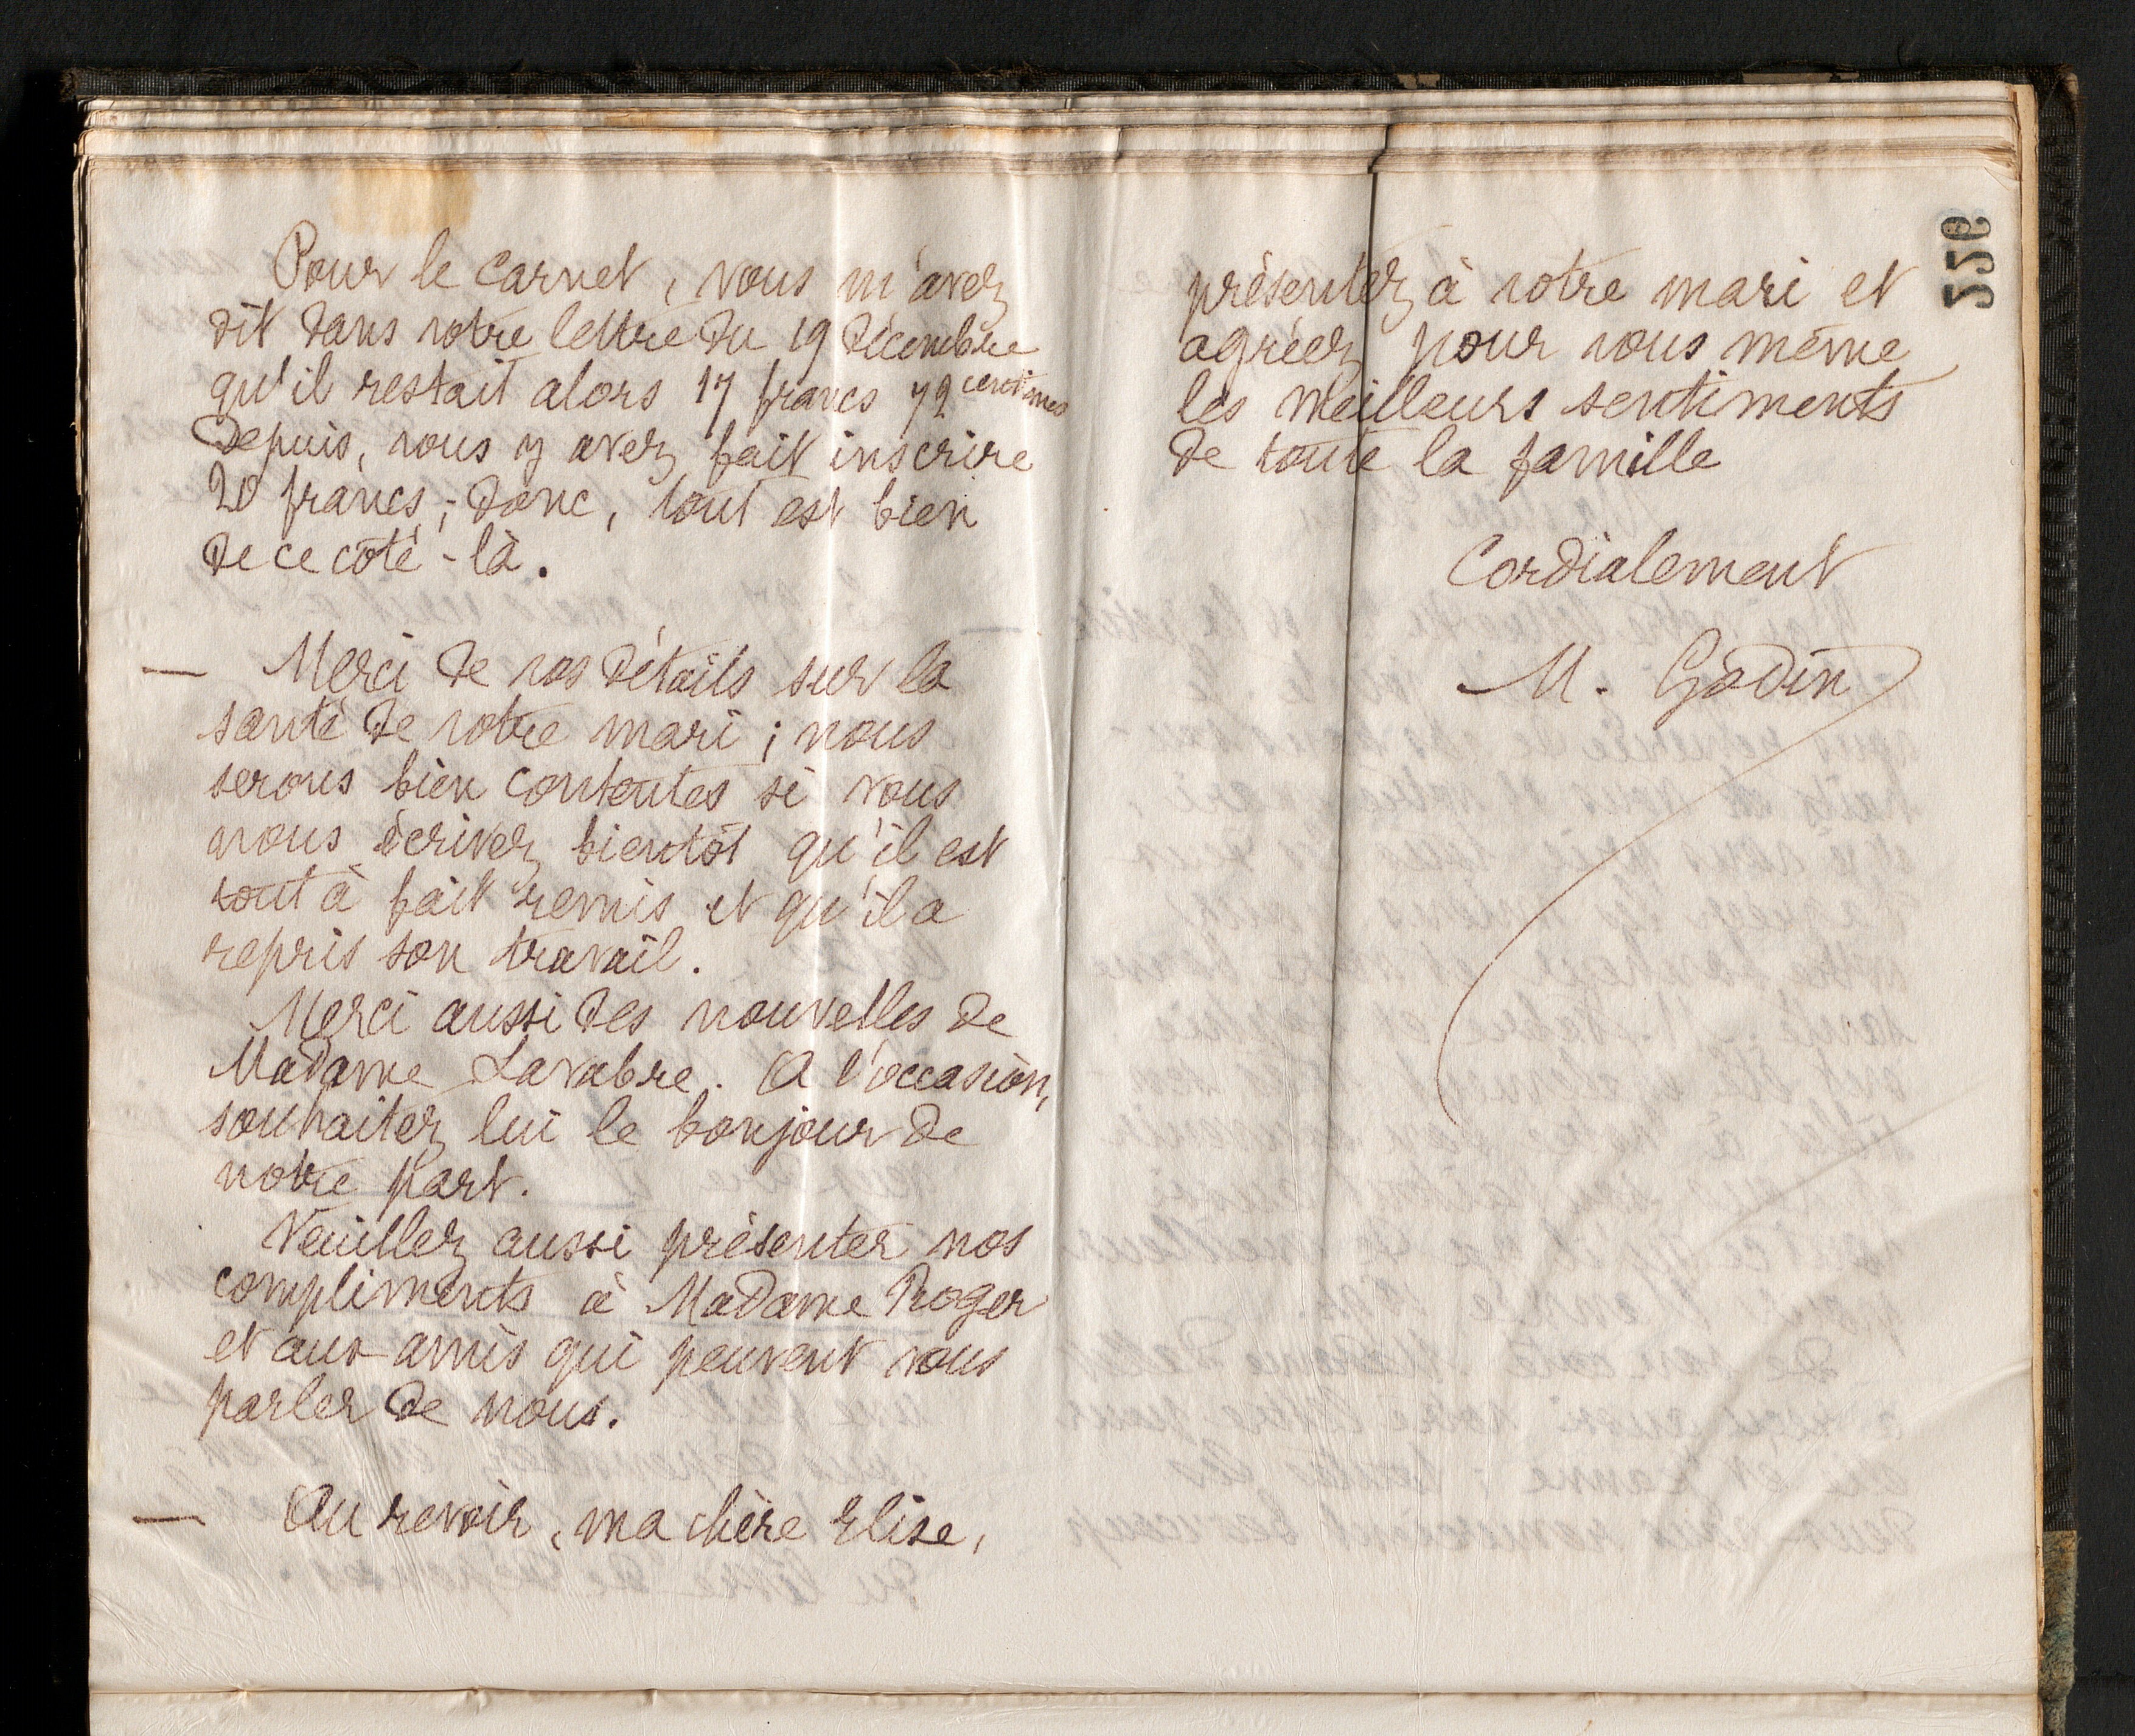 Pour le carnet, vous m'avez
dit dans votre lettre du 19 décembre
qu'il restait alors 17 francs 72 centimes
Depuis, vous y avez fait inscrire
20 francs ; donc, tout est bien
de ce côté-là.
— Merci de vos détails sur la
santé de votre mari ; nous
serons bien contentes si vous
nous écrivez bientôt qu'il est
tout à fait remis et qu'il a
repris son travail.
Merci aussi des nouvelles de
Madame Lavabre. A l'occasion,
souhaitez lui le bonjour de
notre part.
Veuillez aussi présenter nos
compliments à Madame Roger
et aux amis qui peuvent vous
parler de nous.
— Au revoir, ma chère Elise,
556
présentez à votre mari et
agréez pour vous même
les meilleurs sentiments
de toute la famille
Cordialement
M. Godin